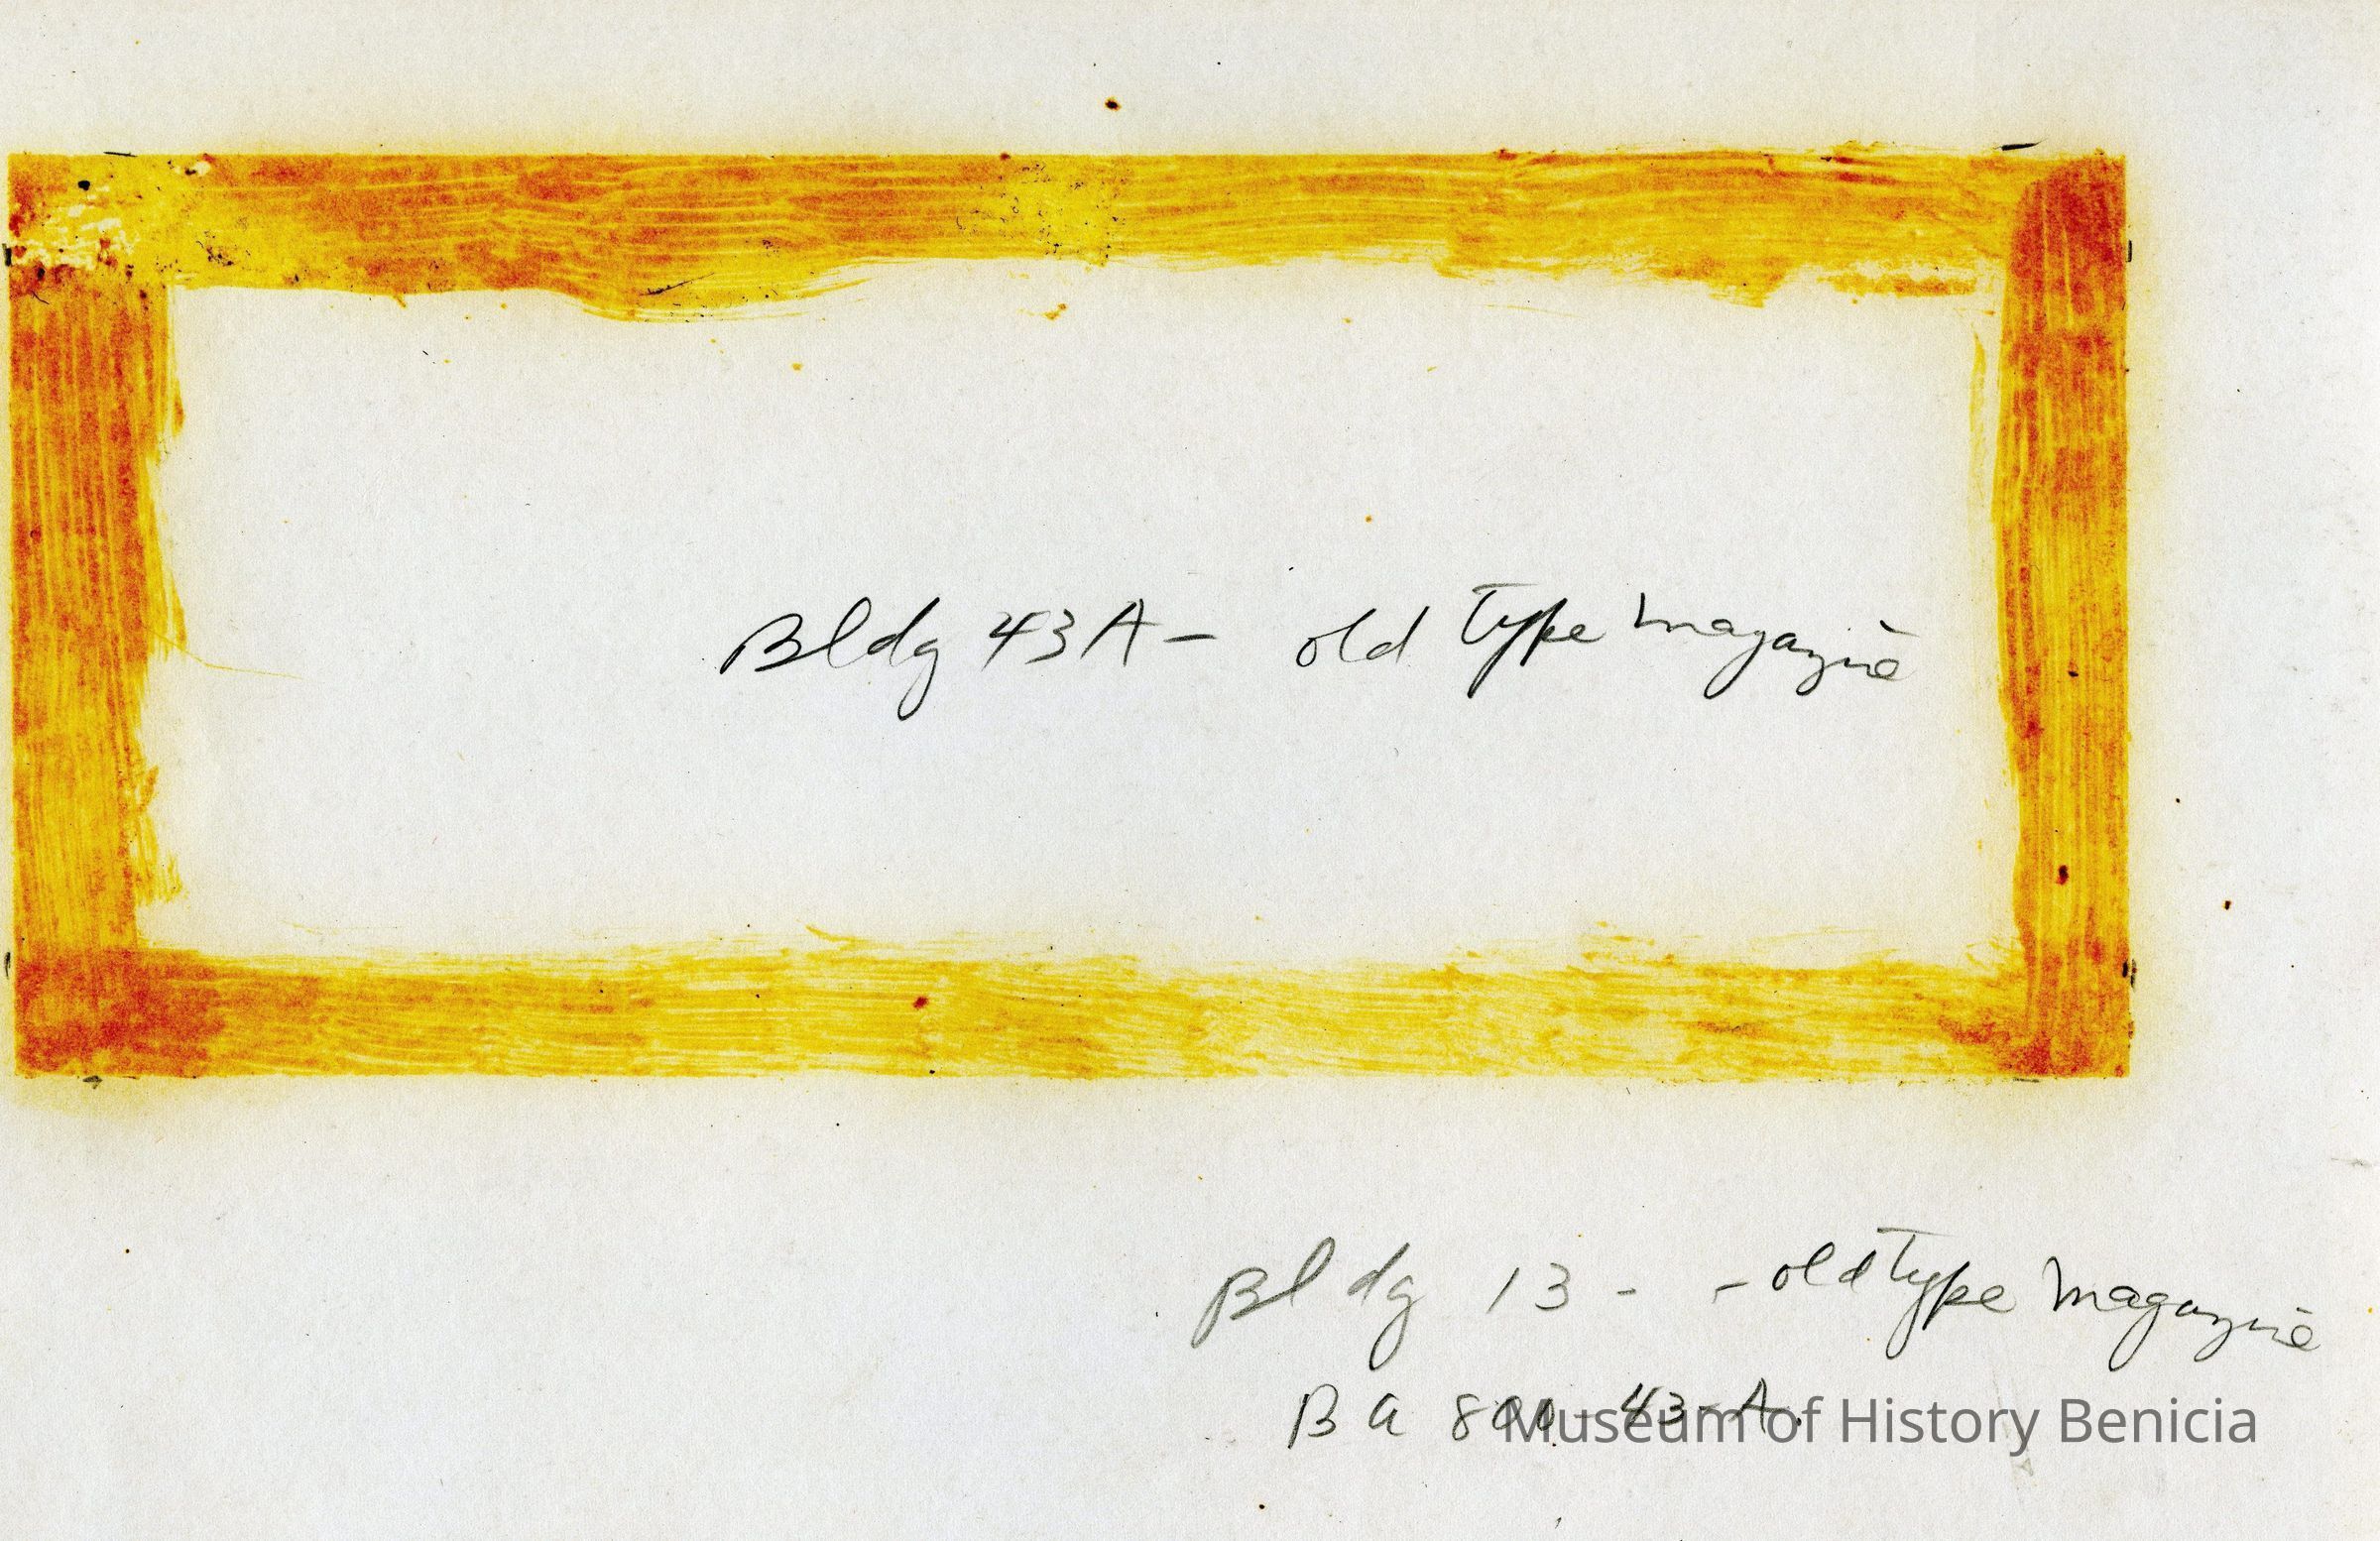 Bldg 43A - old type magazine
Bldg 13 - - old type magazine
B a 800 - 43-A.
Museum of History Benicia